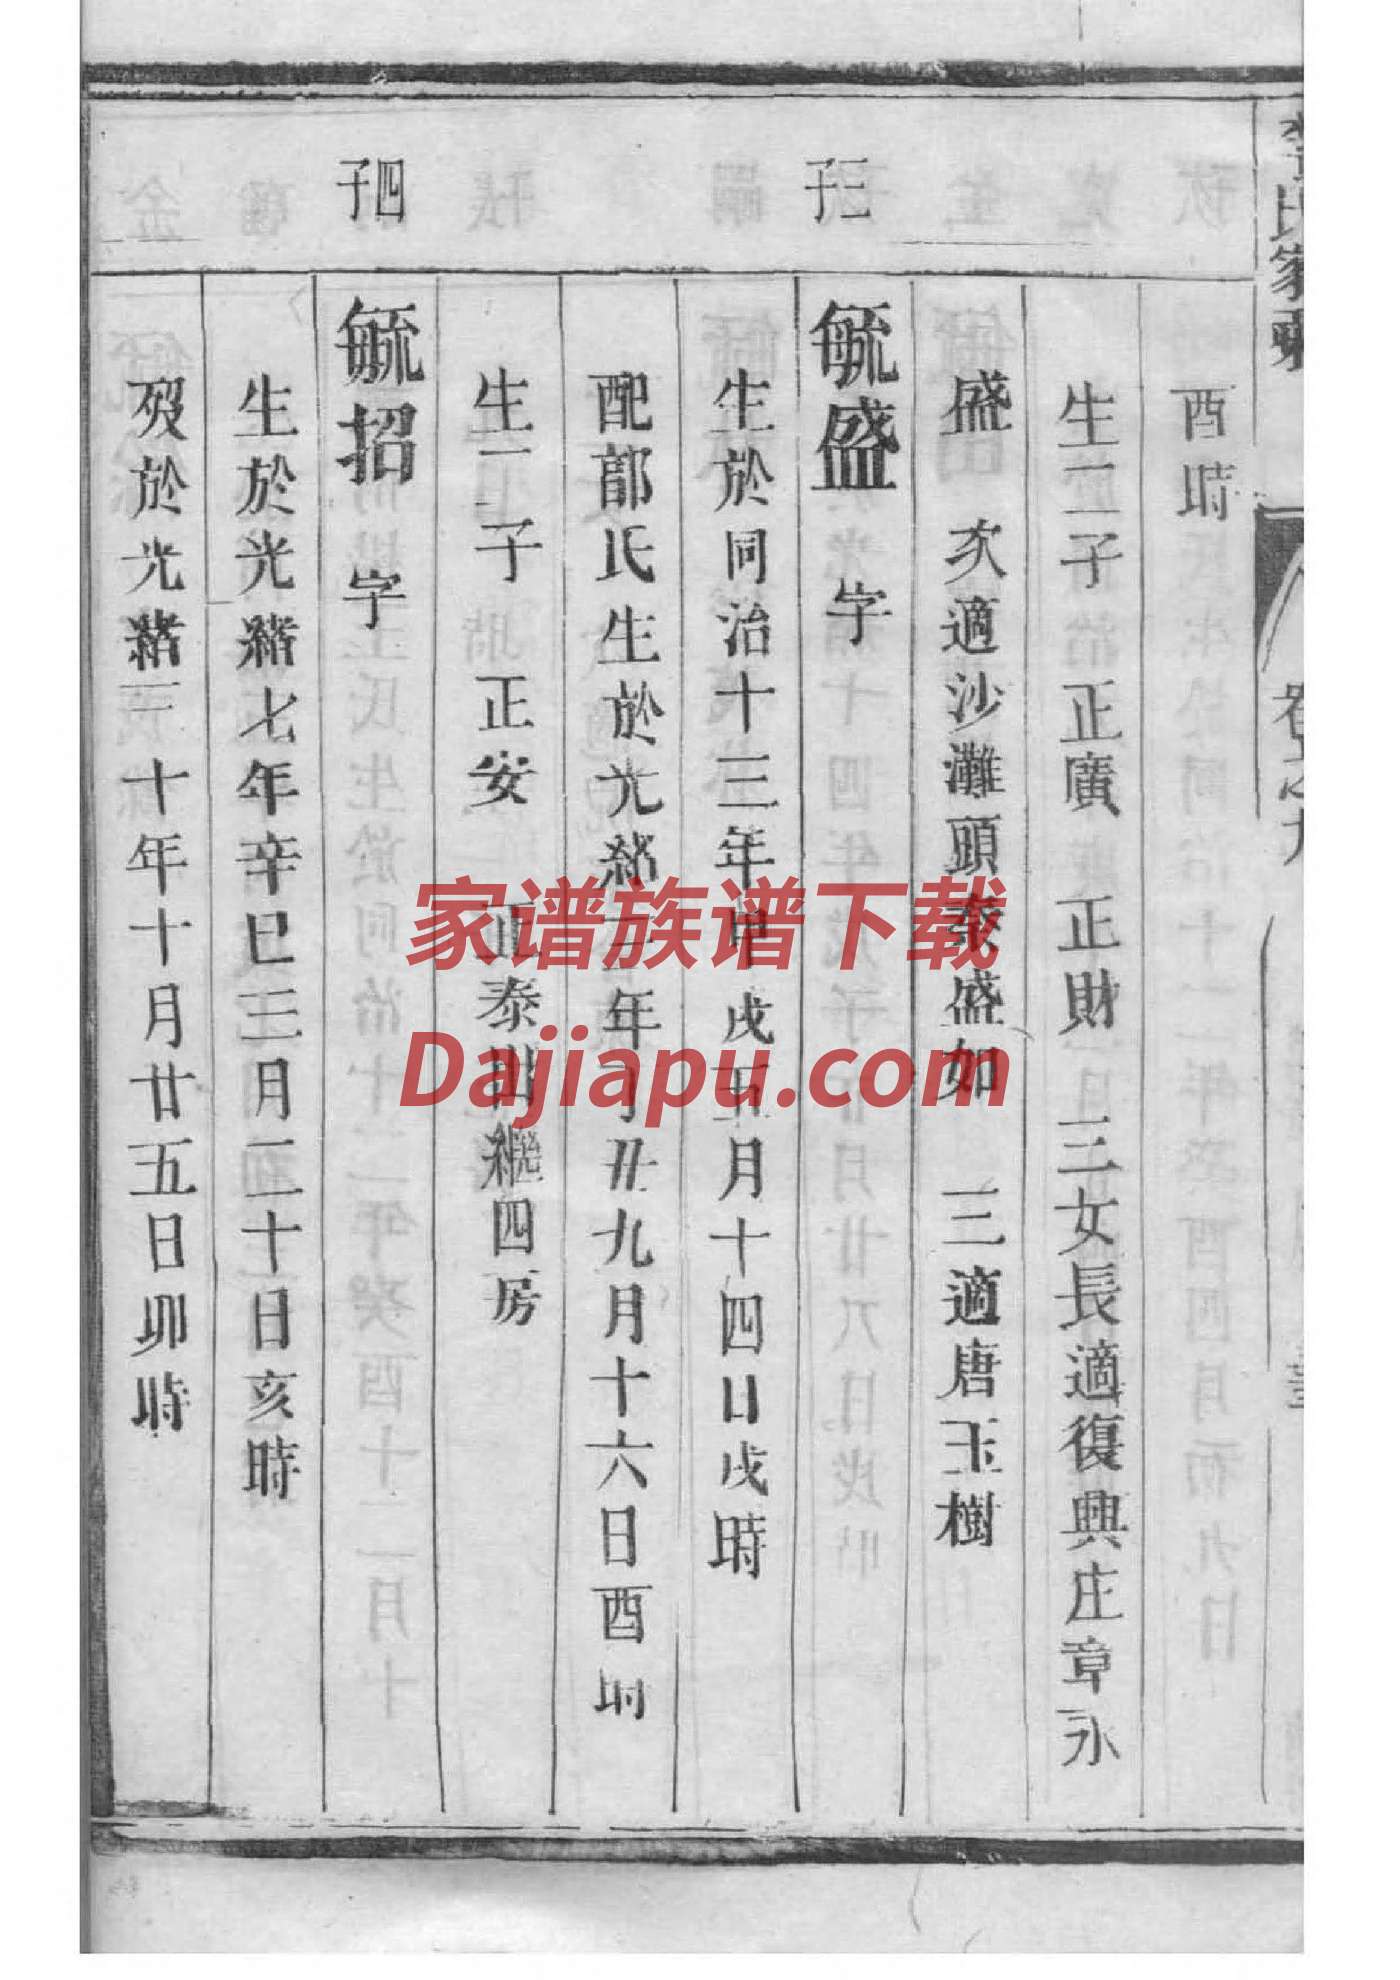 氏家乘
卷之九
酉時
生二子 正廣 正財 三女長適復興庄章永
盛 次適沙灘頭袁盛如 三適唐玉樹
三子
毓盛 字
生於同治十三年甲戌五月十四日戌時
配鄣氏生於光緒三年丁丑九月十六日酉時
生二子 正安 正泰出繼四房
四子
毓招 字
生於光緒七年辛巳三月二十日亥時
歿於光緒三十年十月廿五日卯時
家谱族谱下载
Dajiapu.com